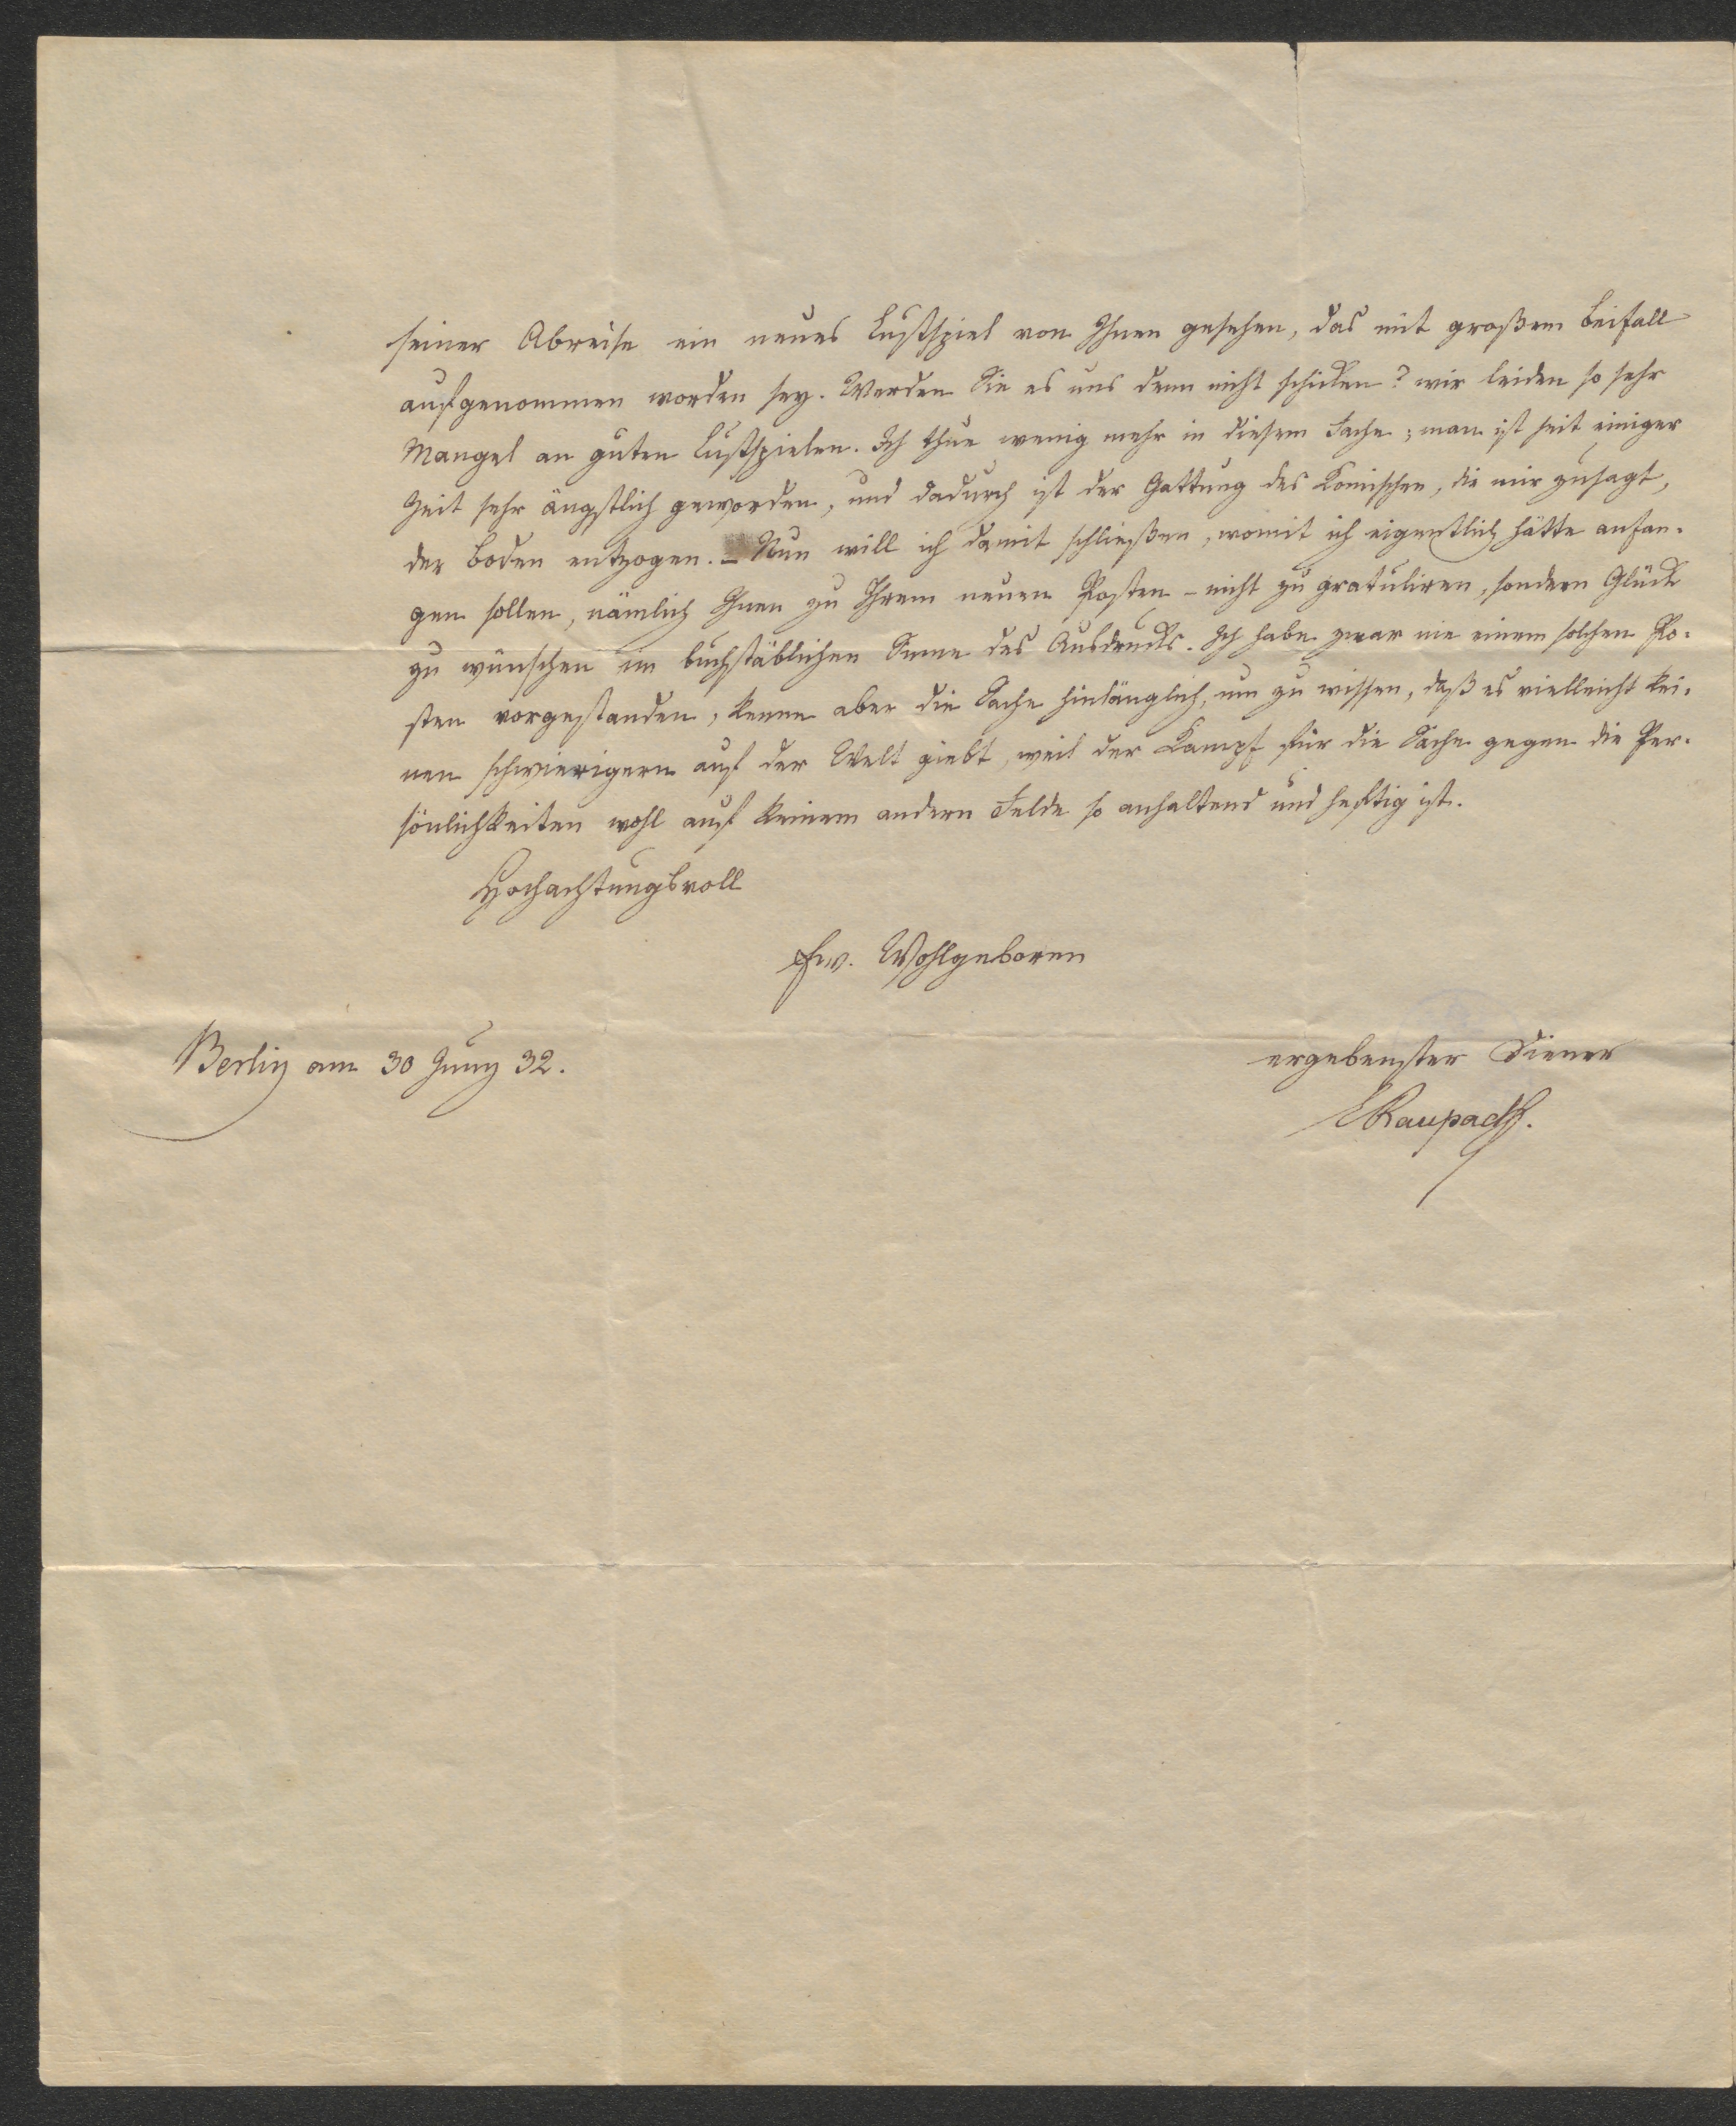 seiner Abreise ein neues Lustspiel von Ihnen gesehen, das mit großem Beifall
aufgenommen worden sey. Werden Sie es uns denn nicht schicken? wir leiden so sehr
Mangel an guten Lustspielen. Ich thue wenig mehr in diesem Fache; man ist seit einiger
Zeit sehr ängstlich geworden, und dadurch ist der Gattung des Komischen, die mir zusagt,
der Boden entzogen. – Nun will ich damit schließen, womit ich eigentlich hätte anfan-
gen sollen, nämlich Ihnen zu Ihrem neuen Posten – nicht zu gratuliren, sondern Glück
zu wünschen im buchstäblichen Sinne des Ausdrucks. Ich habe zwar nie einem solchen Po-
sten vorgestanden, kenne aber die Sache hinlänglich, um zu wissen, daß es vielleicht kei-
nen schwierigern auf der Welt giebt, weil der Kampf für die Sache gegen die Per-
sönlichkeiten wohl auf keinem andern Felde so anhaltend und heftig ist.
Hochachtungsvoll
Ew. Wohlgeboren
Berlin am 30 Juny 32.
ergebenster Diener
ERaupach.